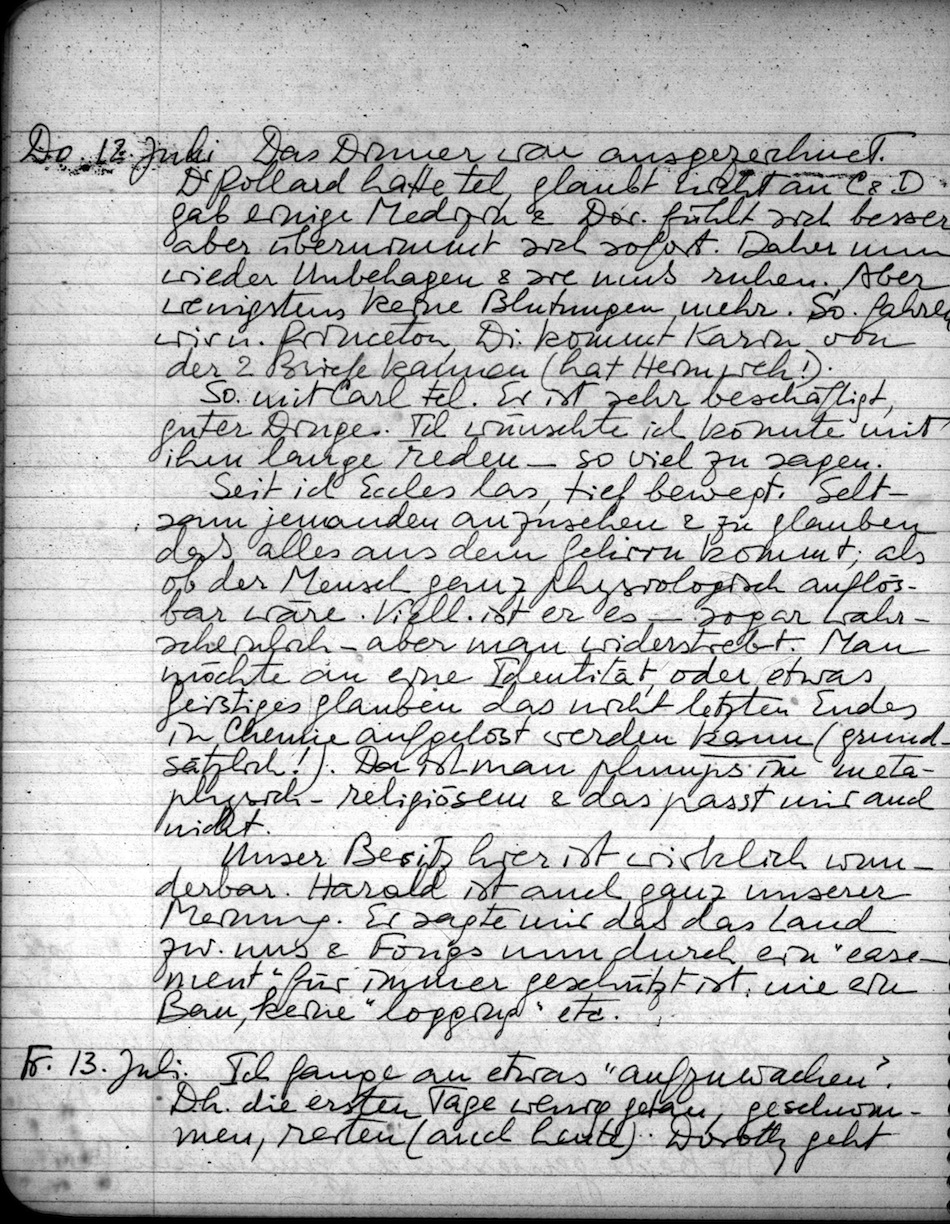 Do. 12. Juli Das Dinner war ausgezeichnet.
Dr Pollard hatte tel, glaubt nicht an C & D
gab einige Medizin & Dor. fühlt sich besser
aber übernimmt sich sofort. Daher nun
wieder Unbehagen & sie muß ruhen. Aber
wenigstens keine Blutungen mehr. So. fahren
wir n. Princeton, Di. kommt Karin von
der 2 Briefe kamen (hat Heimweh!).
So. mit Carl tel. Er ist sehr beschäftigt,
guter Dinge. Ich wünschte ich könnte mit
ihm lange reden — so viel zu sagen.
Seit ich Eccles las, tief bewegt. Selt-
sam jemanden anzusehen & zu glauben
daß alles aus dem Gehirn kommt, als
ob der Mensch ganz physiologisch auflös-
bar wäre. Viell. ist er es — sogar wahr-
scheinlich – aber man widerstrebt. Man
möchte an eine Identität oder etwas
geistiges glauben das nicht letzten Endes
in Chemie aufgelöst werden kann (grund-
sätzlich!). Da ist man plumps im meta-
physisch – religiösem & das passt mir auch
nicht.
Unser Besitz hier ist wirklich wun-
derbar. Harold ist auch ganz unserer
Meinung. Er sagte mir daß das Land
zw. uns & Fongs nun durch ein "ease-
ment" für immer geschützt ist, nie ein
Bau, keine "logging" etc.
Fr. 13. Juli. Ich fange an etwas "aufzuwachen".
Dh. die ersten Tage wenig getan, geschwom-
men, reiten (auch heute). Dorothy geht